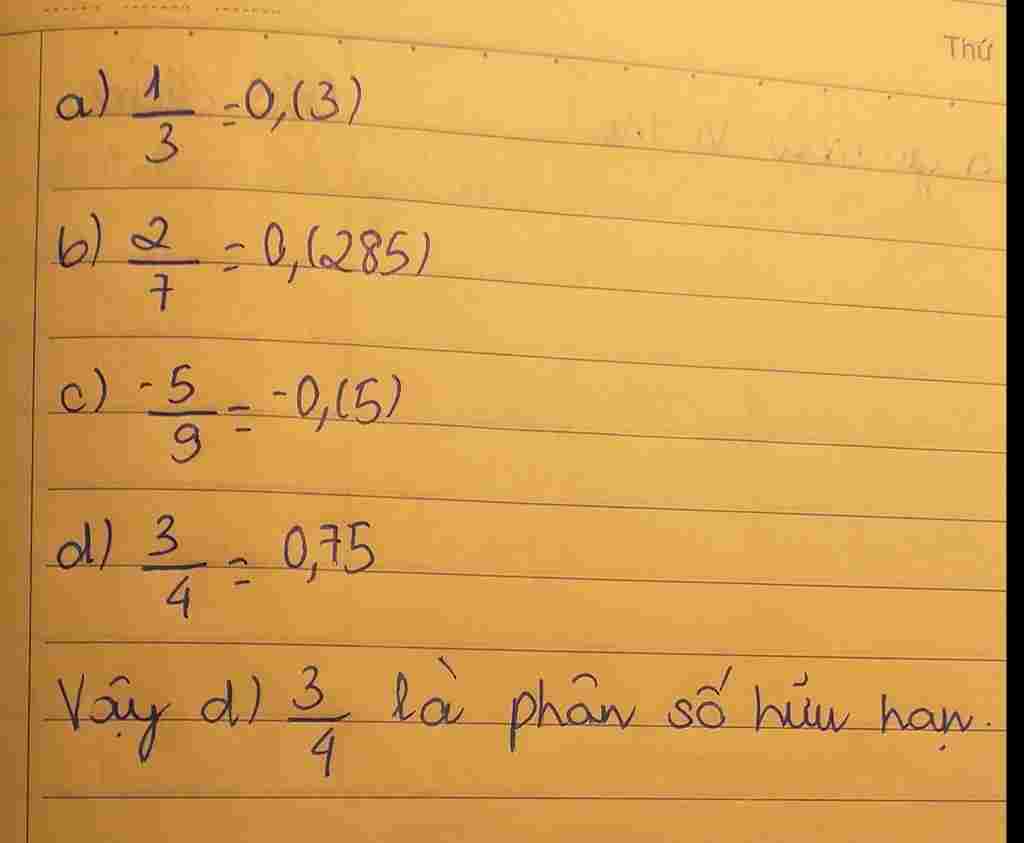 Thứ
a) 1/3 = 0,(3)
b) 2/7 = 0,(285)
c) -5/9 = -0,(5)
d) 3/4 = 0,75
Vậy d) 3/4 là phân số hữu hạn.